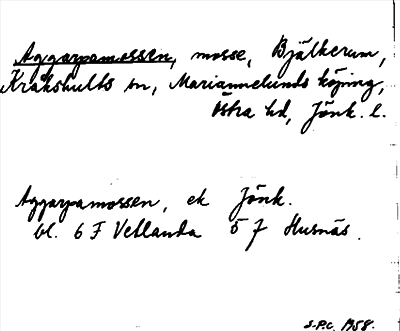 Aggarpamossen, mosse, Bjälkerum,
Kråkshults sn, Mariannelunds köping,
Östra hd, Jönk. l.
Aggarpamossen, ek Jönk.
bl. 6 F Vetlanda 5 f Husnäs.
S.P.C. 1958.